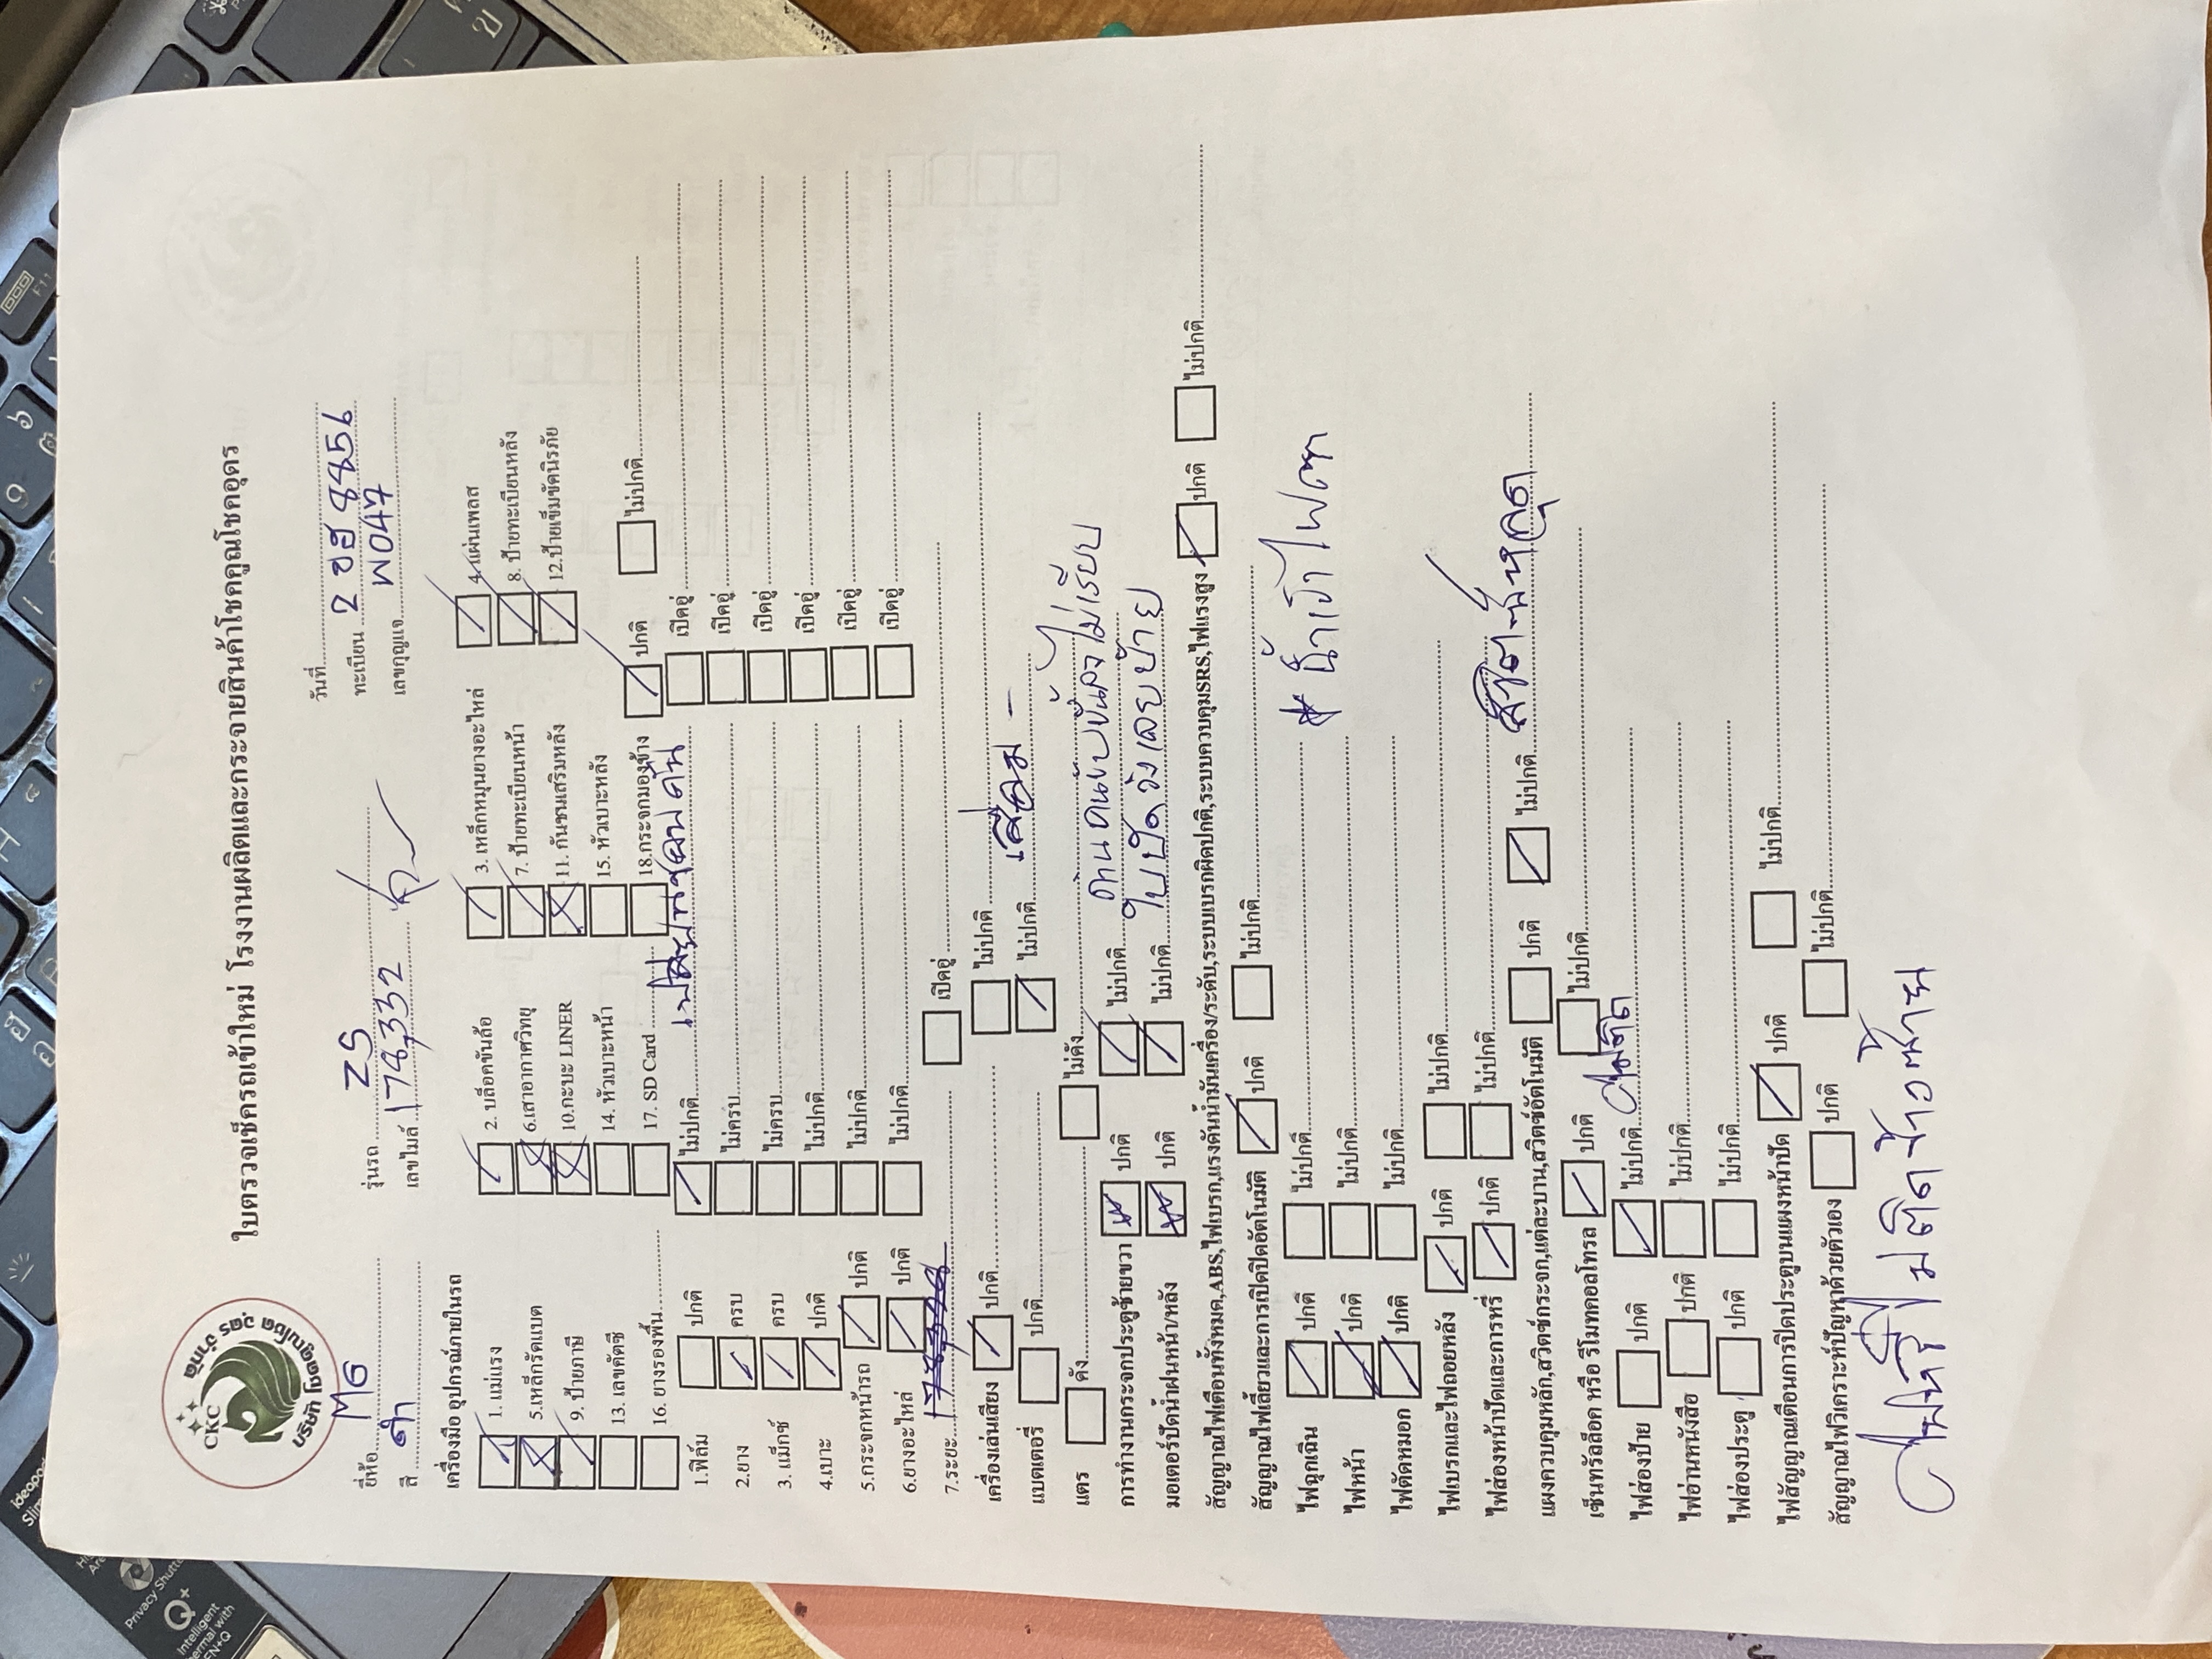 CKC
บริษัท โชคคูณโชค อุดร จำกัด
ใบตรวจเช็ครถเข้าใหม่ โรงงานผลิตและกระจายสินค้าโชคคูณโชคอุดร
วันที่
ยี่ห้อ MG รุ่นรถ ZS ทะเบียน 2 ขฮ 8856
สี ดำ เลขไมล์ 178,332 เลขกุญแจ W047
เครื่องมือ อุปกรณ์ภายในรถ
1. แม่แรง 2. บล็อคขันล้อ 3. เหล็กหมุนยางอะไหล่ 4.แผ่นเพลส
5.เหล็กรัดแบต 6.เสาอากาศวิทยุ 7. ป้ายทะเบียนหน้า 8. ป้ายทะเบียนหลัง
9. ป้ายภาษี 10.กะบะ LINER 11. กันชนเสริมหลัง 12.ป้ายเข็มขัดนิรภัย
13. เลขคัตซี 14. หัวเบาะหน้า 15. หัวเบาะหลัง
16. ยางรองพื้น 17. SD Card 18.กระจกมองข้าง ปกติ ไม่ปกติ
1.ฟิล์ม ปกติ ไม่ปกติ เปิดอู่
2.ยาง ครบ ไม่ครบ เปิดอู่
3. แม็กซ์ ครบ ไม่ครบ เปิดอู่
4.เบาะ ปกติ ไม่ปกติ เปิดอู่
5.กระจกหน้ารถ ปกติ ไม่ปกติ เปิดอู่
6.ยางอะไหล่ ปกติ ไม่ปกติ เปิดอู่
7.ระยะ เปิดอู่
เครื่องเล่นเสียง ปกติ ไม่ปกติ
แบตเตอรี่ ปกติ ไม่ปกติ เสื่อม -
แตร ดัง ไม่ดัง
การทำงานกระจกประตูซ้ายขวา ปกติ ไม่ปกติ ด้านคนขับขึ้นลงไม่เรียบ
มอเตอร์ปัดน้ำฝนหน้า/หลัง ปกติ ไม่ปกติ ใบปัดวิ่งเลยป้าย
สัญญาณไฟเตือนทั้งหมด,ABS,ไฟเบรก,แรงดันน้ำมันเครื่อง/ระดับ,ระบบเบรกผิดปกติ,ระบบควบคุมSRS,ไฟแรงสูง ปกติ ไม่ปกติ
สัญญาณไฟเลี้ยวและการเปิดปิดอัตโนมัติ ปกติ ไม่ปกติ
ไฟฉุกเฉิน ปกติ ไม่ปกติ
ไฟหน้า ปกติ ไม่ปกติ
ไฟตัดหมอก ปกติ ไม่ปกติ
ไฟเบรกและไฟถอยหลัง ปกติ ไม่ปกติ
ไฟส่องหน้าปัดและการหรี่ ปกติ ไม่ปกติ
แผงควบคุมหลัก,สวิตช์กระจก,แต่ละบาน,สวิตช์อัตโนมัติ ปกติ ไม่ปกติ
เซ็นทรัลล็อค หรือ รีโมทคอลโทรล ปกติ ไม่ปกติ
ไฟส่องป้าย ปกติ ไม่ปกติ ไม่ติด
ไฟอ่านหนังสือ ปกติ ไม่ปกติ
ไฟส่องประตู ปกติ ไม่ปกติ
ไฟสัญญาณเตือนการปิดประตูบนแผงหน้าปัด ปกติ ไม่ปกติ
สัญญาณไฟวิเคราะห์ปัญหาด้วยตัวเอง ปกติ ไม่ปกติ
ไฟหรี่ไม่ติดข้างซ้าย